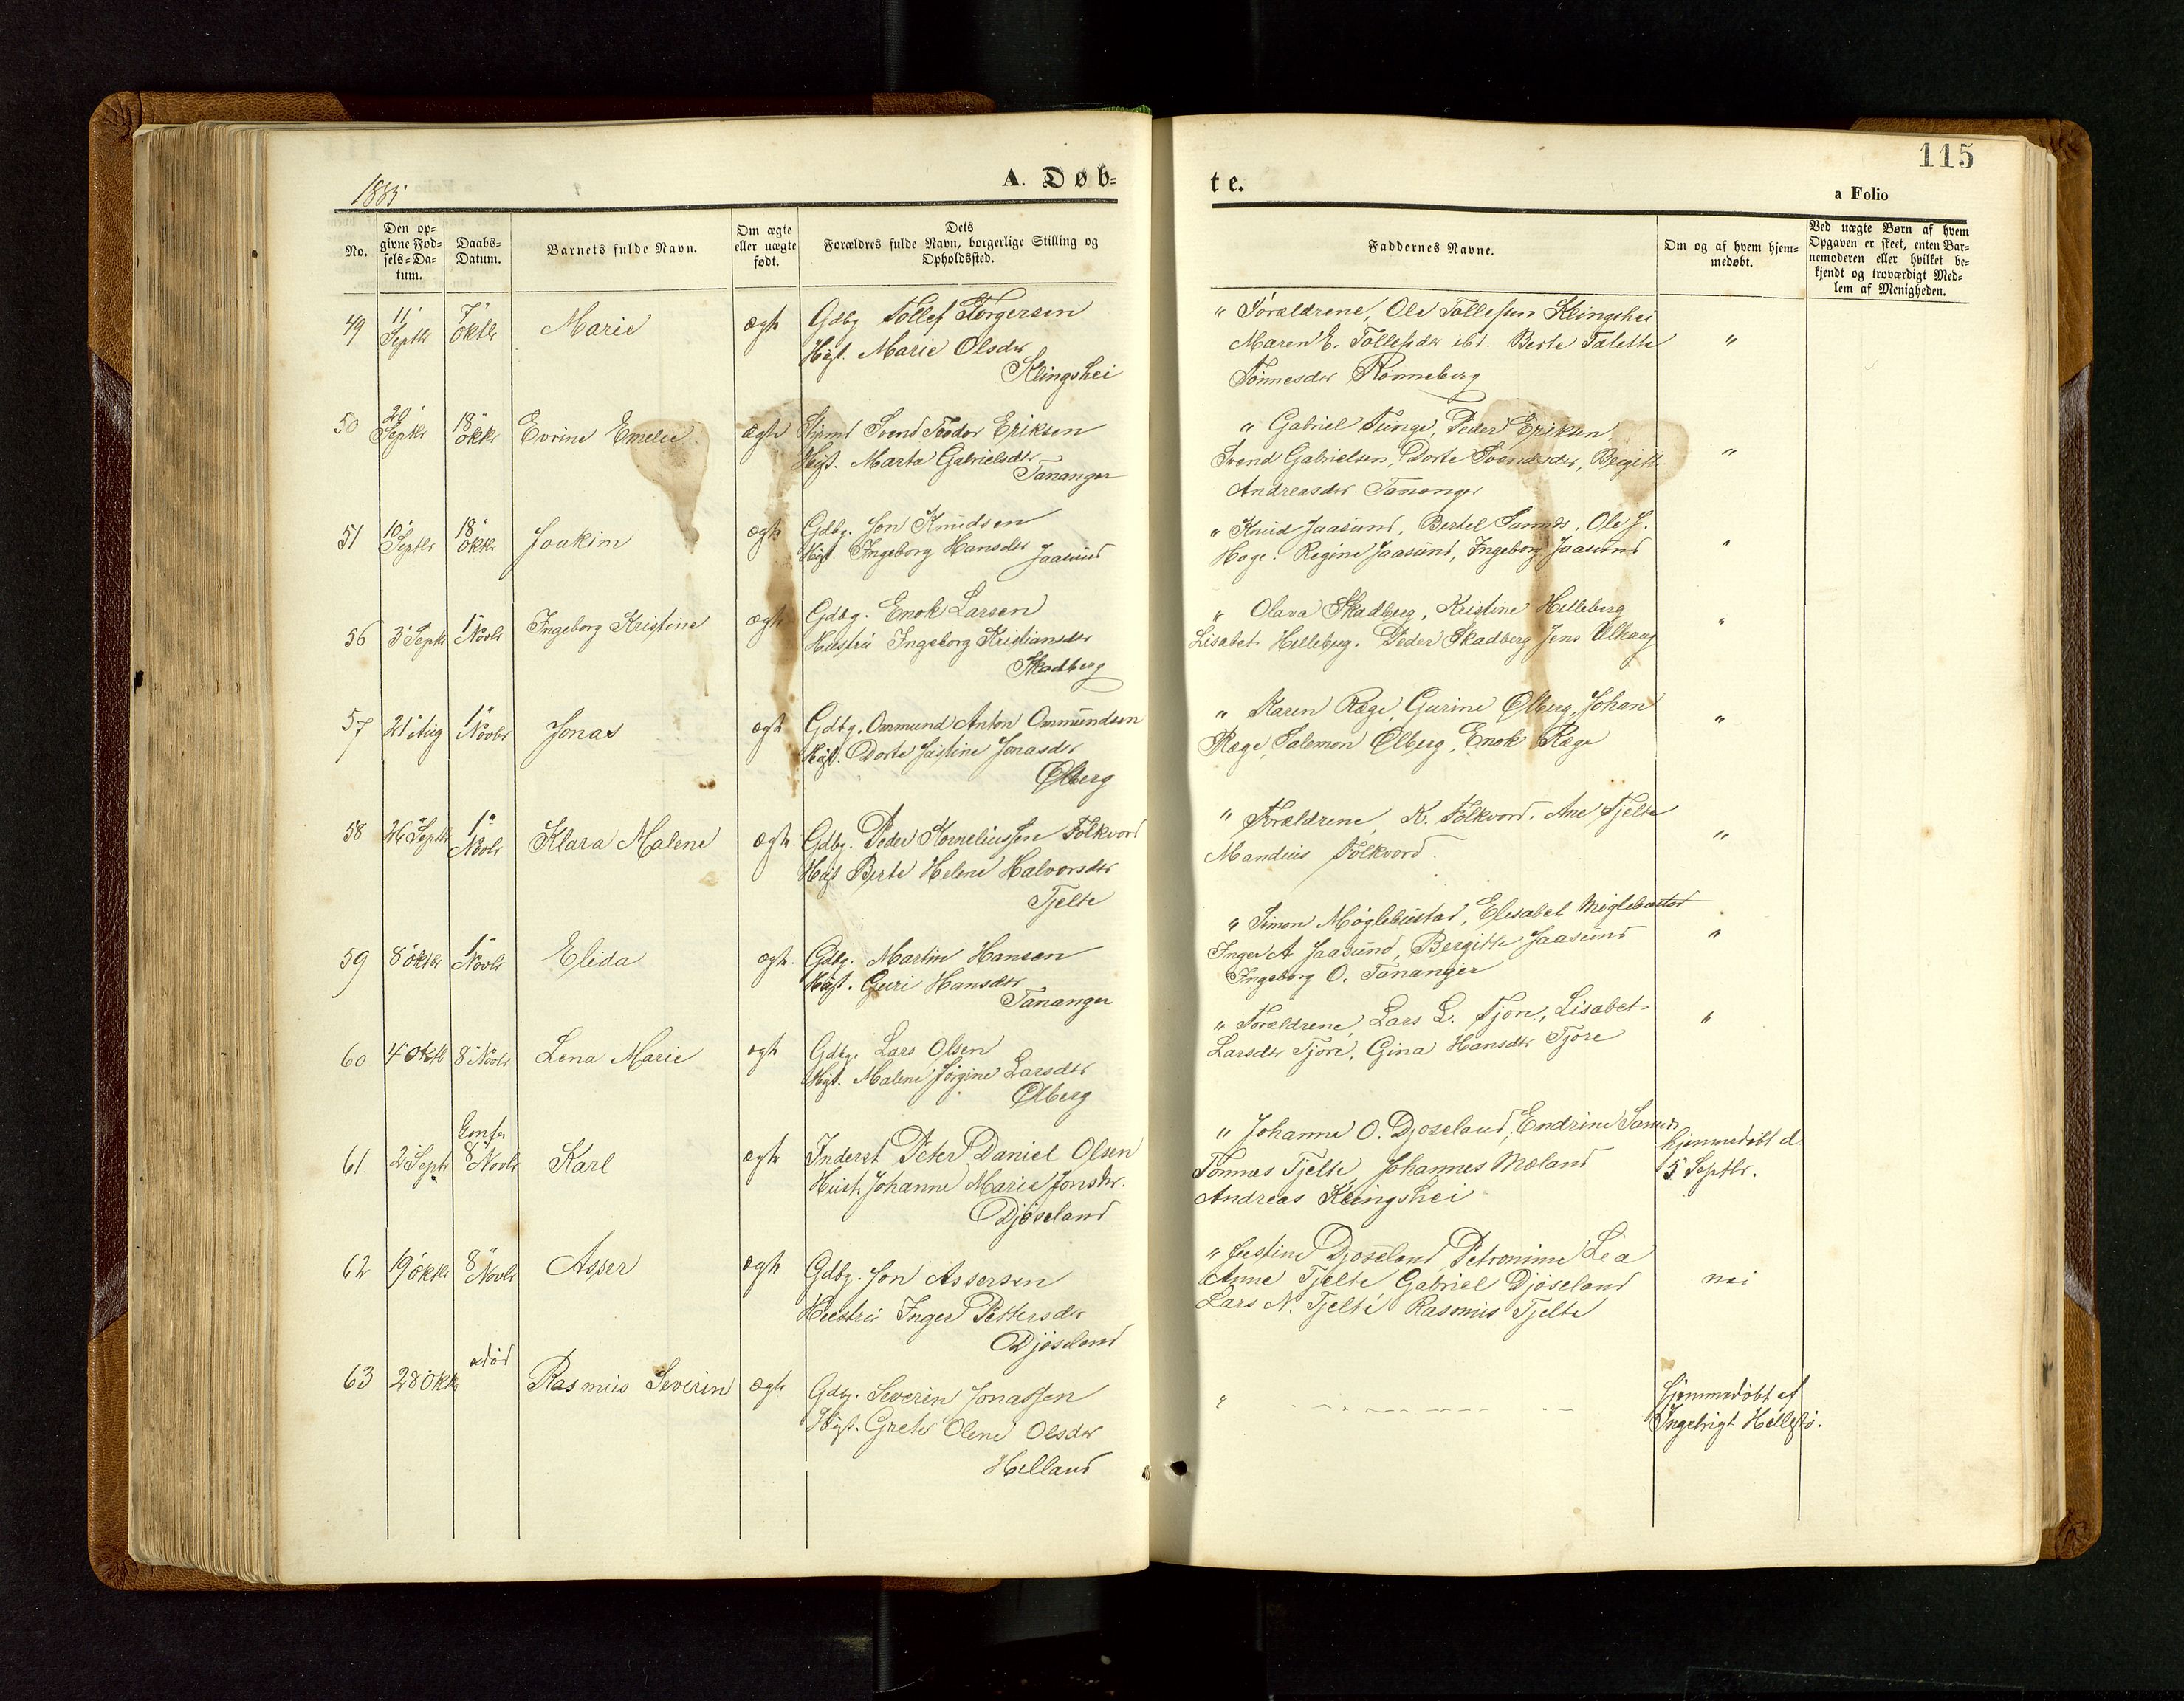 1885
A. Døb-
te.
115
a Folio
No.
Den op-
givne Fød-
sels-Da-
tum.
Daabs-
Datum.
Barnets fulde Navn.
Om ægte
eller uægte
født.
Dets
Forældres fulde Navn, borgerlige Stilling og
Opholdssted.
Faddernes Navne.
Om og af hvem hjem-
medøbt.
Ved uægte Børn af hvem
Opgaven er skeet, enten Bar-
nemoderen eller hvilket be-
kjendt og troværdigt Med-
lem af Menigheden.
49 11 Septbr 7 Oktbr Marie ægte Gdbg Tollef Torgersen
Hust. Marie Olsdtr
Klingshei
" Forældrene, Ole Tollefsen Klingshei
Maren E. Tollefsdtr ibd. Berte Talette
Tønnesdtr Rønneberg
"
50 20 Septbr 18 Oktbr Evrine Emelie ægte Styrmd Svend Teodor Eriksen
Hust. Marta Gabrielsdtr
Tananger
" Gabriel Tunge, Peder Eriksen,
Svend Gabrielsen, Dorte Svendsdtr, Bergitte
Andreasdtr. Tananger
"
51 10 Septbr 18 Oktbr Joakim ægte Gdbg. Jon Knudsen
Hust Ingeborg Hansdtr Jaasund
" Knud Jaasund, Bertel Sannes, Ole J.
Hage. Regine Jaasund, Ingeborg Jaasund
"
56 3 Septbr 1 Novbr Ingeborg Kristine ægte Gdbg. Enok Larsen
Hustru Ingeborg Kristiansdtr
Skadberg
" Olava Skadberg, Kristine Helleberg
Lisabet Helleberg. Peder Skadberg Jens
"
57 21 Aug 1 Novbr Jonas ægte Gdbg. Ommund Anton Ommundsen
Hust. Dorte Justine Jonasdtr
Ølberg
" Karen Ræge, Gurine Ølberg, Johan
Ræge, Salemon Ølberg, Enok Ræge
"
58 26 Septbr 1 Novbr Klara Malene ægte. Gdbg. Peder Korneliussen Folkvord
Hust Berte Helene Halvorsdtr
Tjelte
" Forældrene, K. Folkvord. Ane Tjelte
Mandius Folkvord.
"
59 8 Oktbr 1 Novbr Elida ægte. Gdbg. Martin Hansen
Hust. Guri Hansdtr
Tananger
" Simon Møglebustad, Elisabet Møglebustad
Inger A Jaasund, Bergitte Jaasund
Ingeborg O. Tananger
"
60 4 Oktb 8 Novbr Lena Marie ægte Gdbg. Lars Olsen
Hust. Malene Jørgine Larsdtr
Ølberg
" Forældrene, Lars L. Tjøre, Lisabet
Larsdtr Tjøre, Gina Hansdtr Tjøre
"
61. 2 Septb Konfr 8 Novbr Karl ægte Inderst Peter Daniel Olsen
Hust. Johanne Marie Jonsdtr.
Djøseland
" Johanne O. Djøseland, Endrine Sannes
Tønnes Tjelte, Johannes Meland
Andreas Klingshei
hjemmedøbt d.
5 Septbr.
62 19 Oktbr 8 Novbr Asser ægte Gdbg. Jon Assersen
Hustru Inger Pettersdtr
Djøseland
" Justine Djøseland Petronime Lea
Anne Tjelte Gabriel Djøseland
Lars N. Tjelte Rasmus Tjelte
nei
63 28 Oktb død Rasmus Severin ægte Gdbg. Severin Jonassen
Hust. Grete Olene Olsdtr
Helland
"
hjemmedøbt af
Ingebrigt Hellestø.